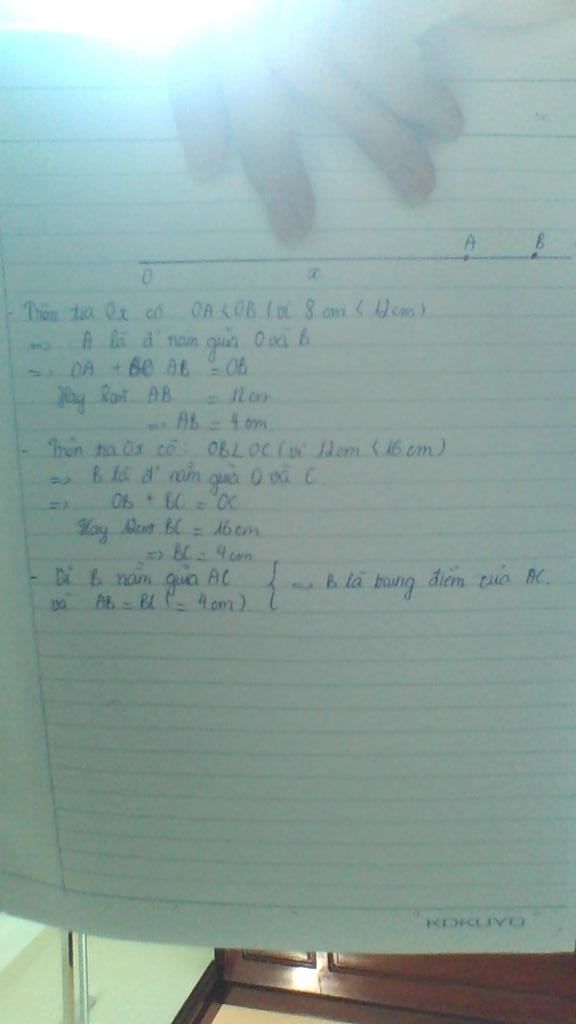 A B
O x
- Trên tia Ox có OA < OB (vì 8 cm < 12cm)
=> A là đ' nằm giữa O và B
=> OA + AB = OB
Hay 8cm+ AB = 12cm
=> AB = 4 cm
- Trên tia Ox có: OB < OC (vì 12cm < 16 cm)
=> B là đ' nằm giữa O và C
=> OB + BC = OC
Hay 12cm+ BC = 16cm
=> BC = 4cm
- B nằm giữa AC { => B là trung điểm của AC.
và AB = BC (= 4cm)
KOKUYO